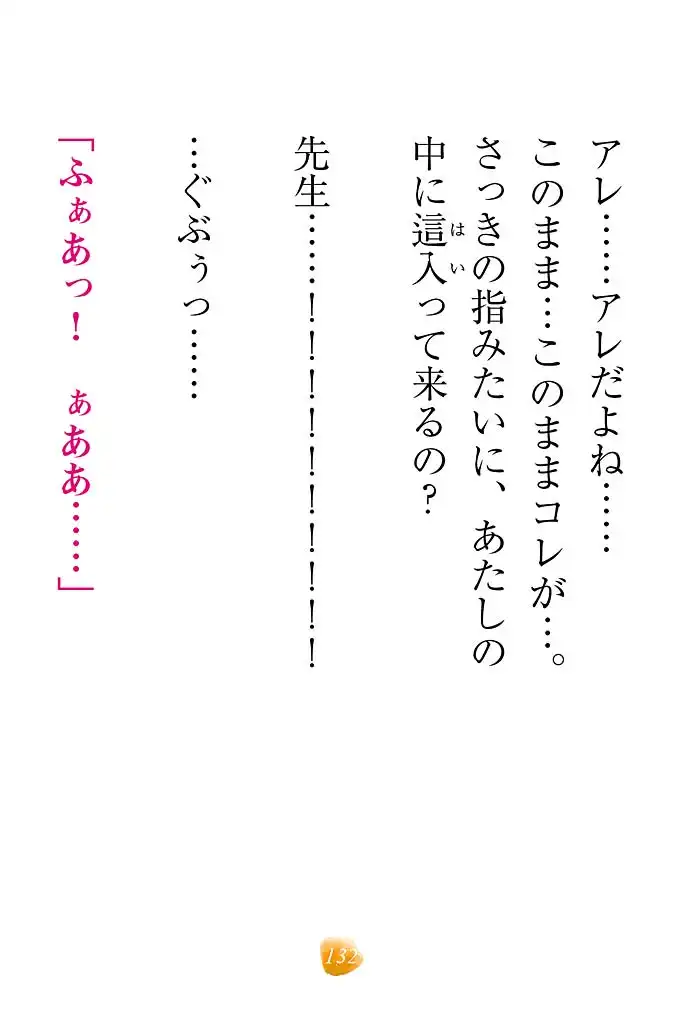 アレ……アレだよね……
このまま…このままコレが…。
さっきの指みたいに、あたしの
中に這入って来るの？
はい
先生……！！！！！！！！！
…ぐぶぅっ……
「ふぁあっ！　ぁああ……」
132